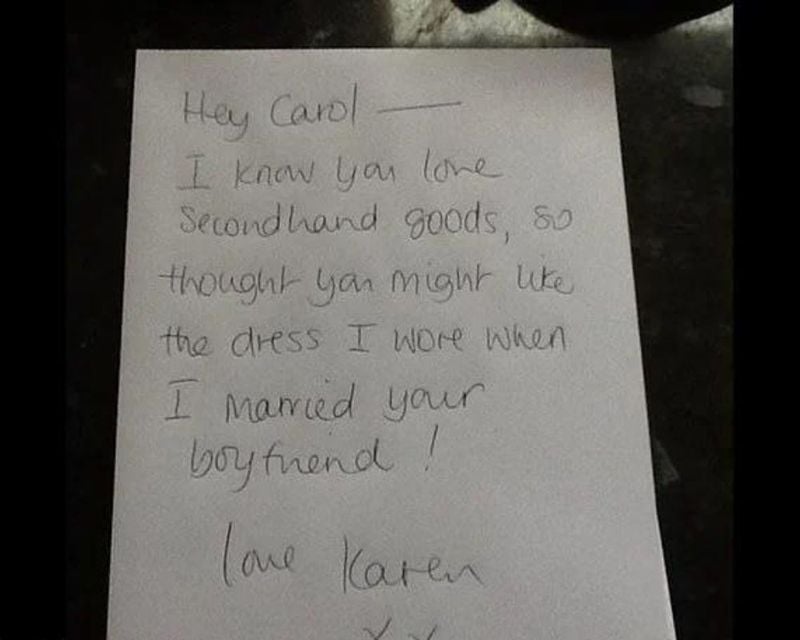 Hey Carol —
I know you love
Secondhand goods, so
thought you might like
the dress I wore when
I married your
boyfriend !
love Karen
x x